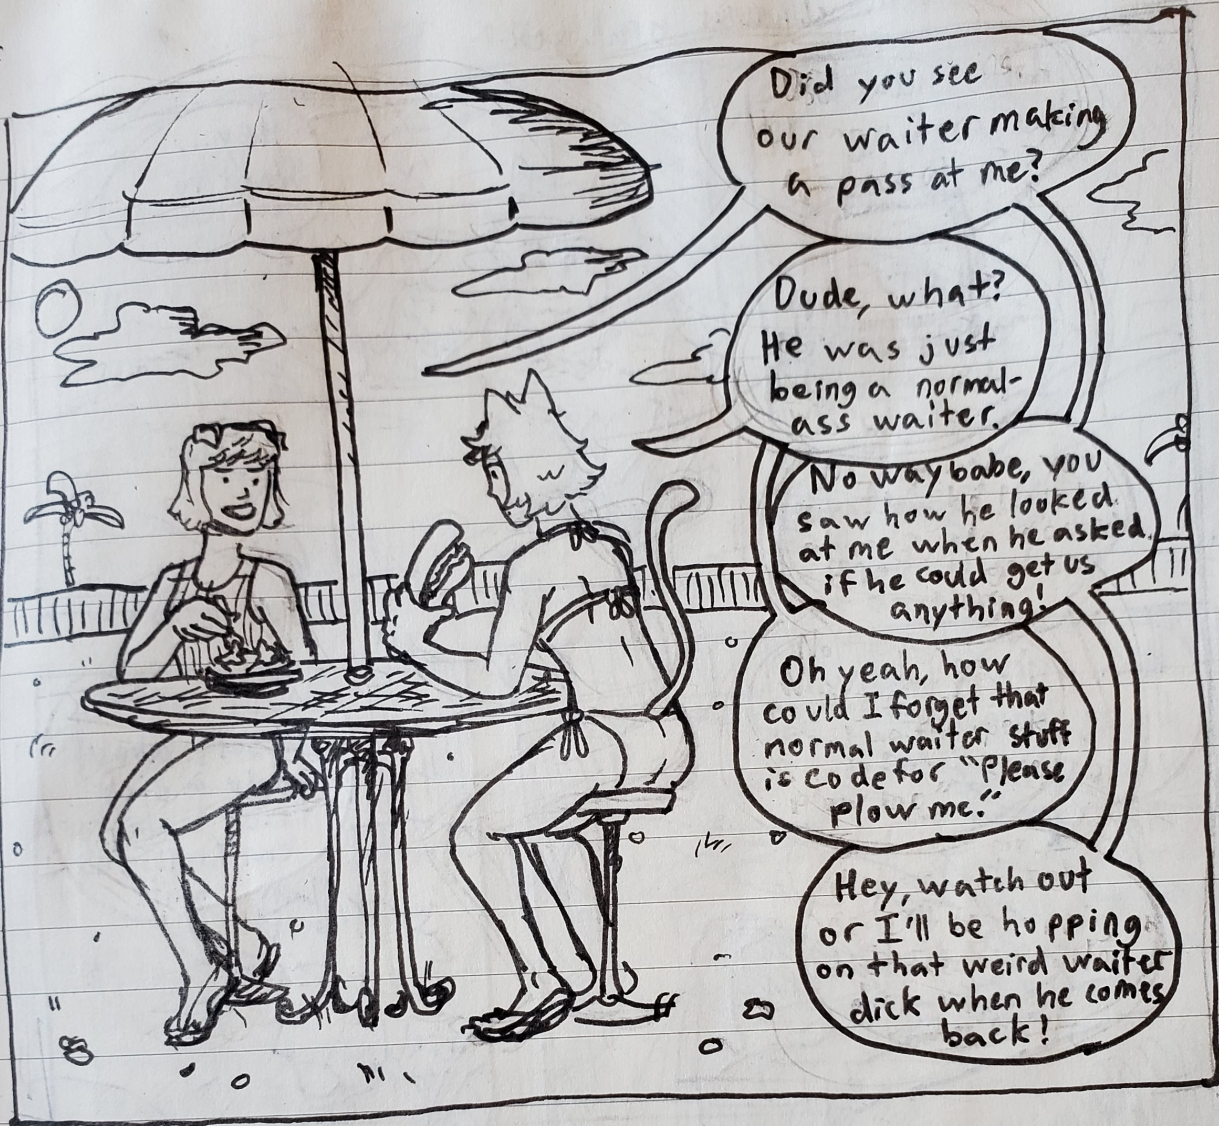 Did you see
our waiter making
a pass at me?
Dude, what?
He was just
being a normal-
ass waiter.
No way babe, you
saw how he looked
at me when he asked
if he could get us
anything!
Oh yeah, how
could I forget that
normal waiter stuff
is code for "Please
plow me."
Hey, watch out
or I'll be hopping
on that weird waiter
dick when he comes
back!